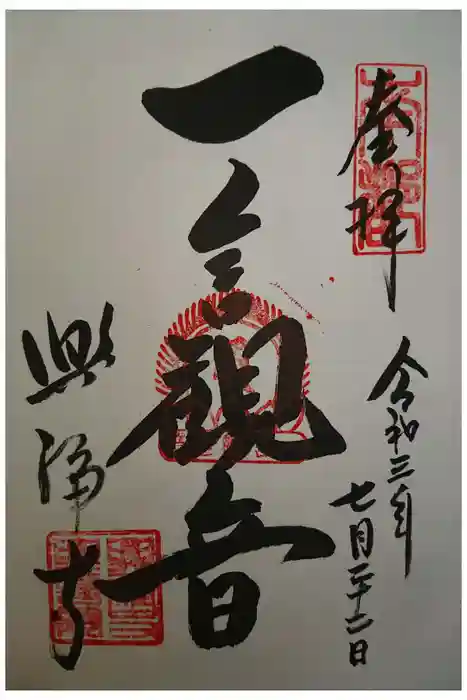 奉拝
令和三年
七月二十二日
一言観音
興浄寺